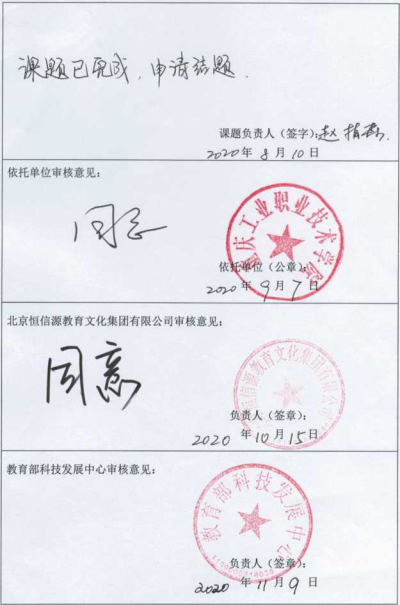 课题已完成，申请结题.
课题负责人（签字）：赵
2020年8月10日
依托单位审核意见：
同意
重庆工业职业技术学院
依托单位（公章）：
2020年9月7日
北京恒信源教育文化集团有限公司审核意见：
同意
北京恒信源教育文化集团有限公司
负责人（签章）：
2020年10月15日
教育部科技发展中心审核意见：
教育部科技发展中心
负责人（签章）：
2020年11月9日